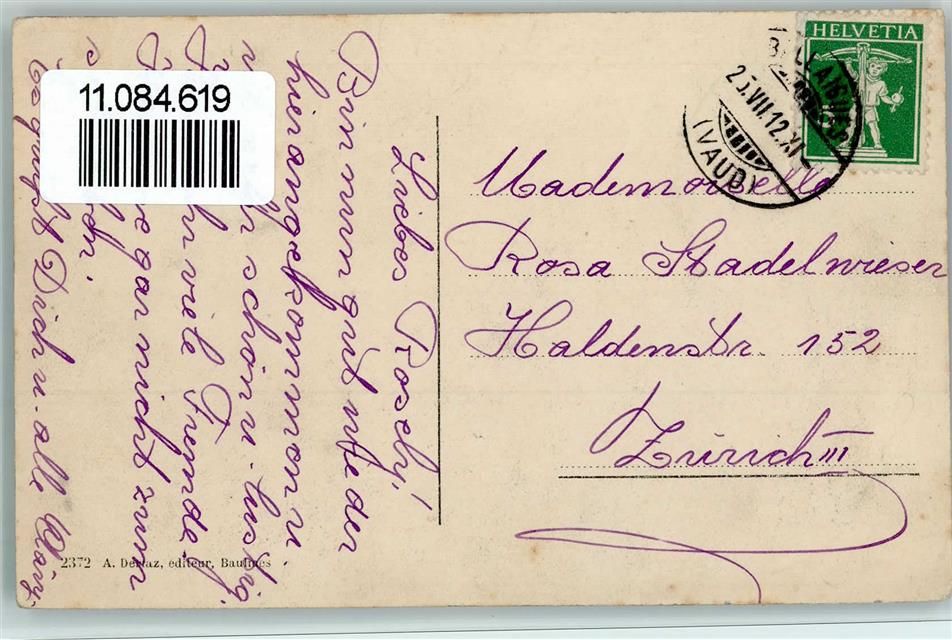 11.084.619
HELVETIA
25.VII.12.XI
(VAUD)
Mademoiselle
Rosa Stadelwieser
Haldenstr. 152
Zürich III
Liebes Rosely!
Bin nun gut wieder
hier angekommen u.
schön u. lustig.
viele Fremde.
gar nicht zum
Es grüsst Dich u. alle Mary.
2372 A. Deriaz, editeur, Baulmes